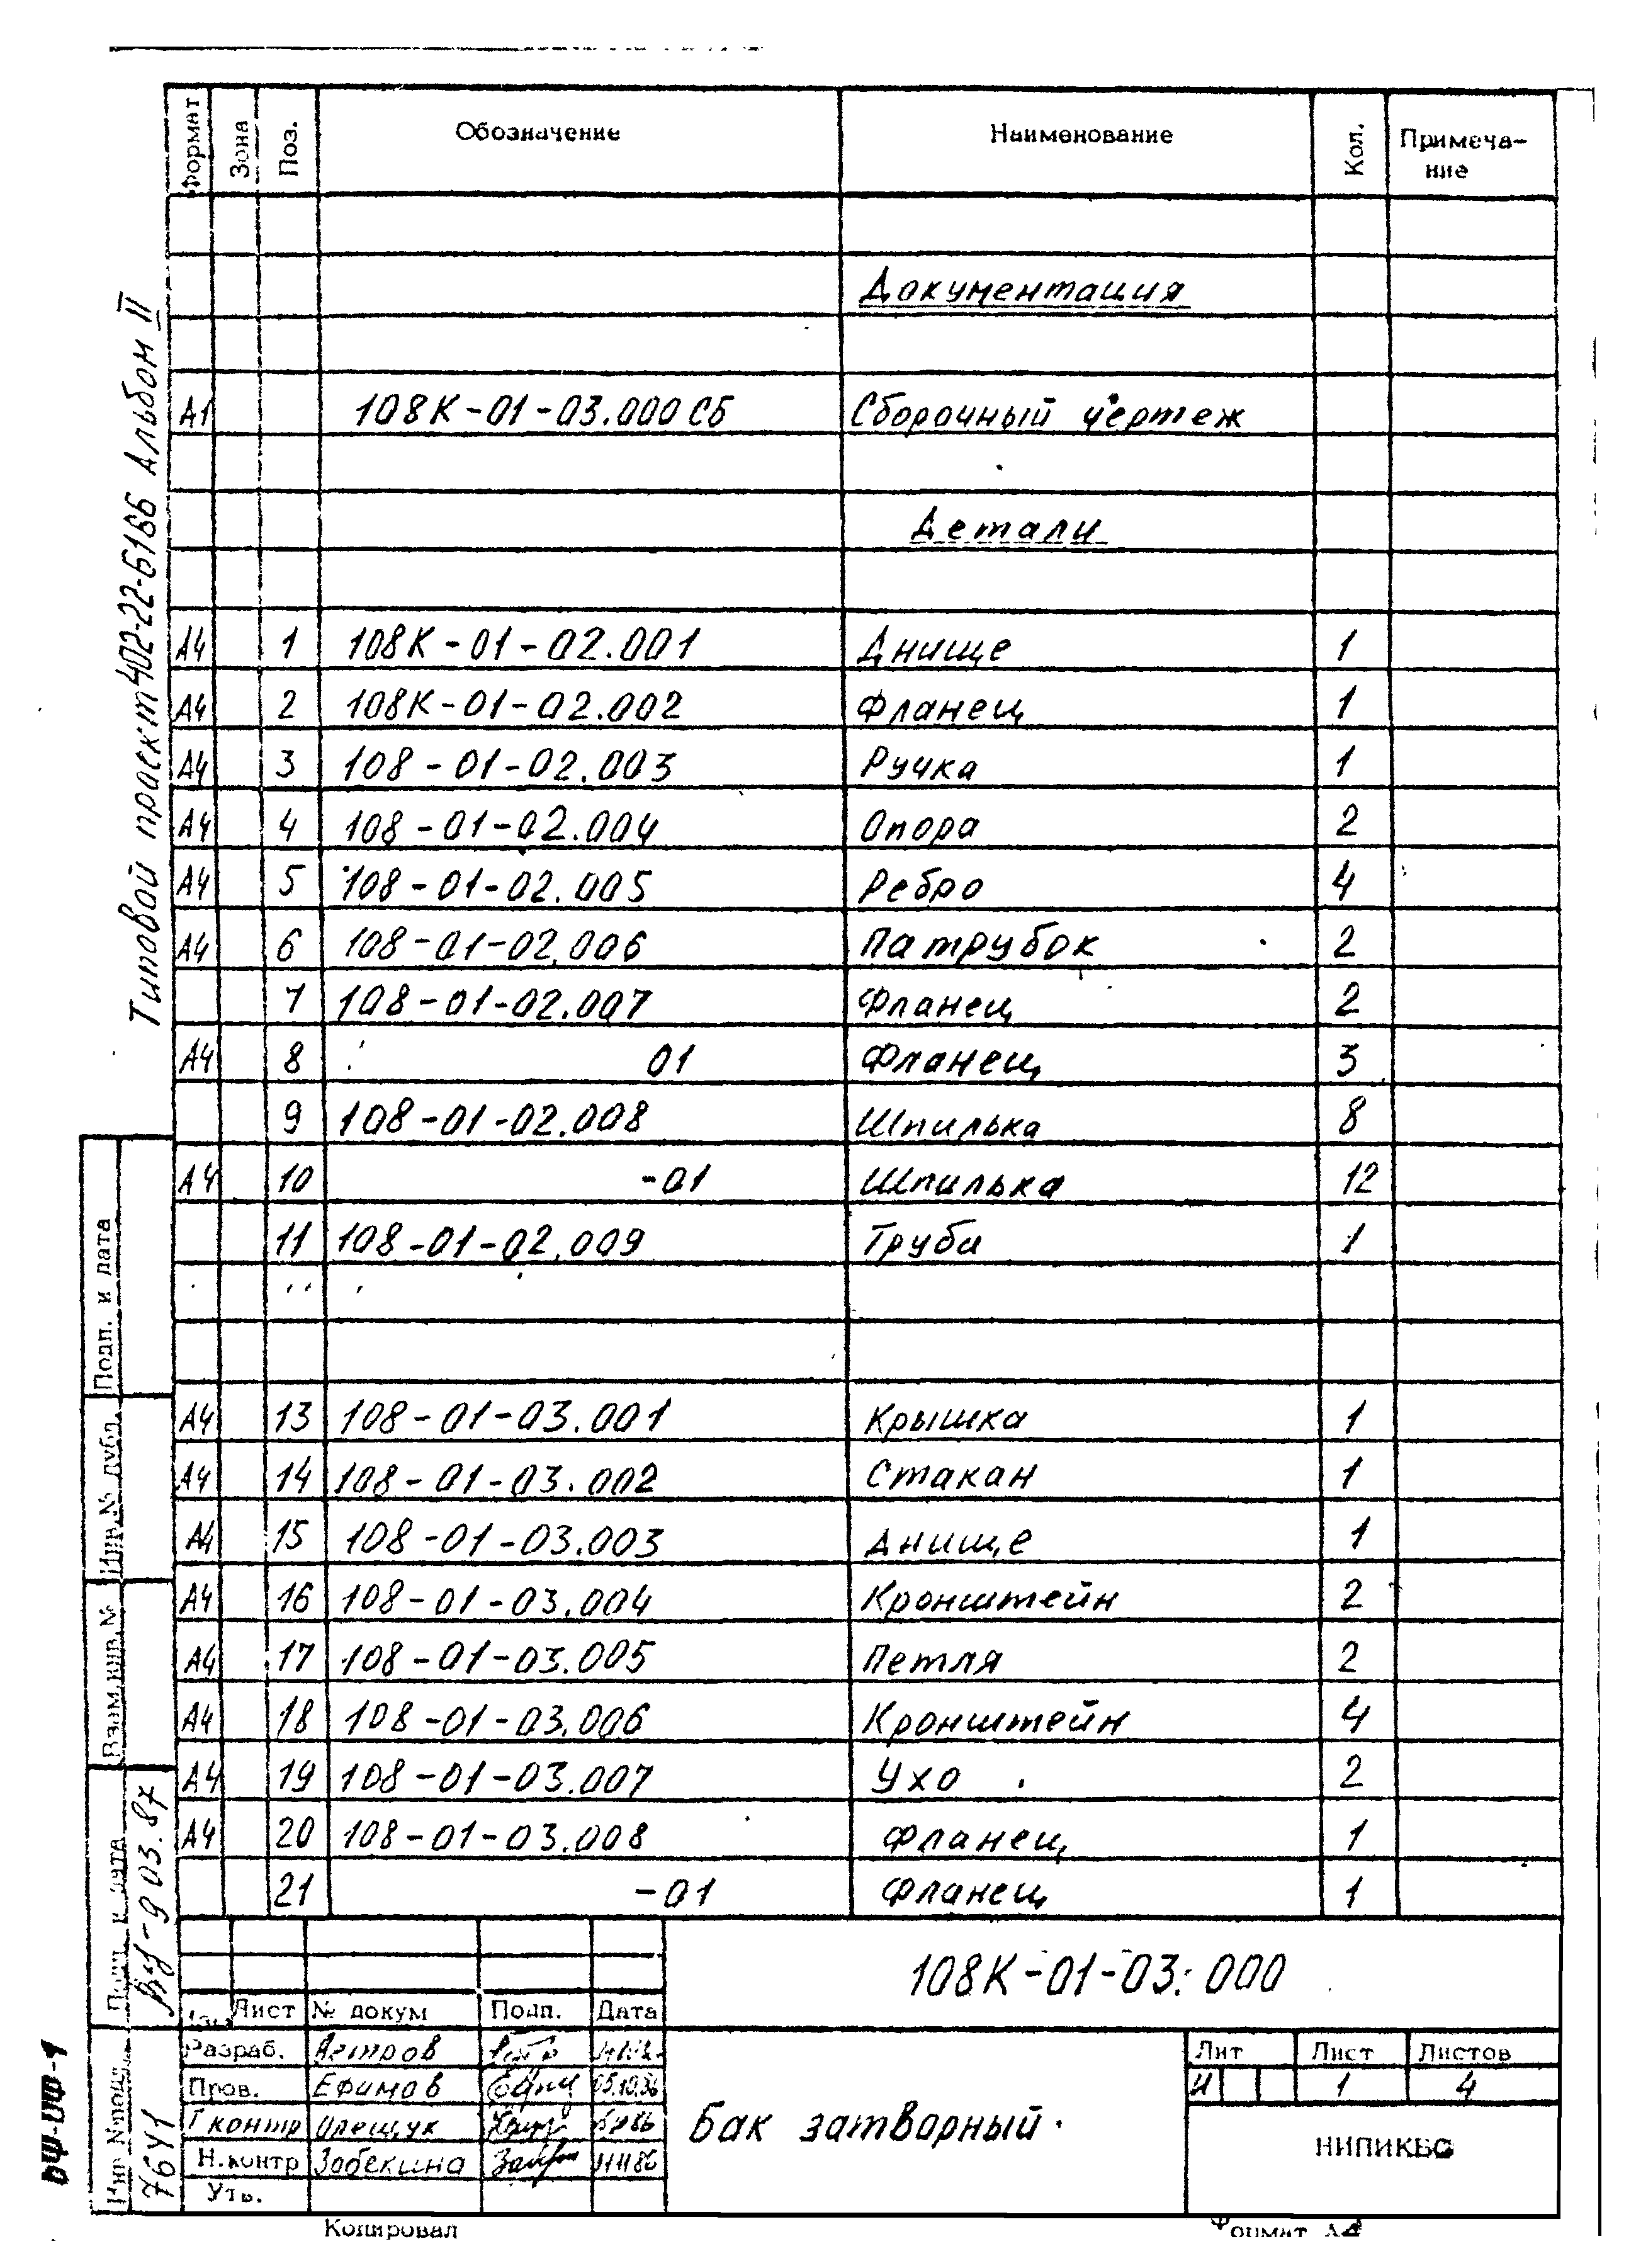 Формат Зона Поз. Обозначение Наименование Кол. Примеча-
ние
Документация
А1 108К-01-03.000 СБ Сборочный чертеж
Детали
А4 1 108К-01-02.001 Днище 1
А4 2 108К-01-02.002 Фланец 1
А4 3 108-01-02.003 Ручка 1
А4 4 108-01-02.004 Опора 2
А4 5 108-01-02.005 Ребро 4
А4 6 108-01-02.006 Патрубок 2
7 108-01-02.007 Фланец 2
А4 8 01 Фланец 3
9 108-01-02.008 Шпилька 8
А4 10 -01 Шпилька 12
11 108-01-02.009 Труба 1
А4 13 108-01-03.001 Крышка 1
А4 14 108-01-03.002 Стакан 1
А4 15 108-01-03.003 Днище 1
А4 16 108-01-03.004 Кронштейн 2
А4 17 108-01-03.005 Петля 2
А4 18 108-01-03.006 Кронштейн 4
А4 19 108-01-03.007 Ухо 2
А4 20 108-01-03.008 Фланец 1
21 -01 Фланец 1
Типовой проект 402-22-61.86 Альбом II
Подп. и дата
Инв.№ дубл.
Взам.инв.№
Подп. и дата
9 03.87
Инв №подл.
7641
БФ-ИФ-1
108К-01-03.000
Лист № докум Подп. Дата
Разраб. Ветров
Пров. Ефимов 05.10.86
Т контр Олещук
Н.контр Зобекина 11 11 86
Утв.
Бак затворный
Лит Лист Листов
И 1 4
НИПИКБС
Копировал Формат А4